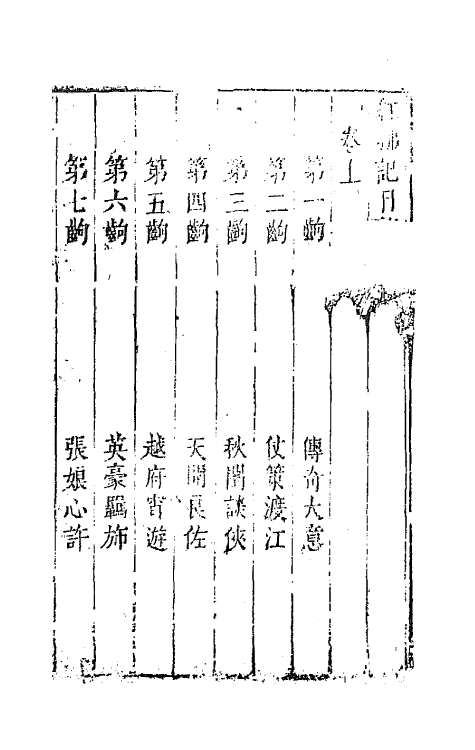 紅拂記目
卷上
第一齣 傳奇大意
第二齣 仗策渡江
第三齣 秋閨談俠
第四齣 天開良佐
第五齣 越府宵遊
第六齣 英豪羈旅
第七齣 張娘心許